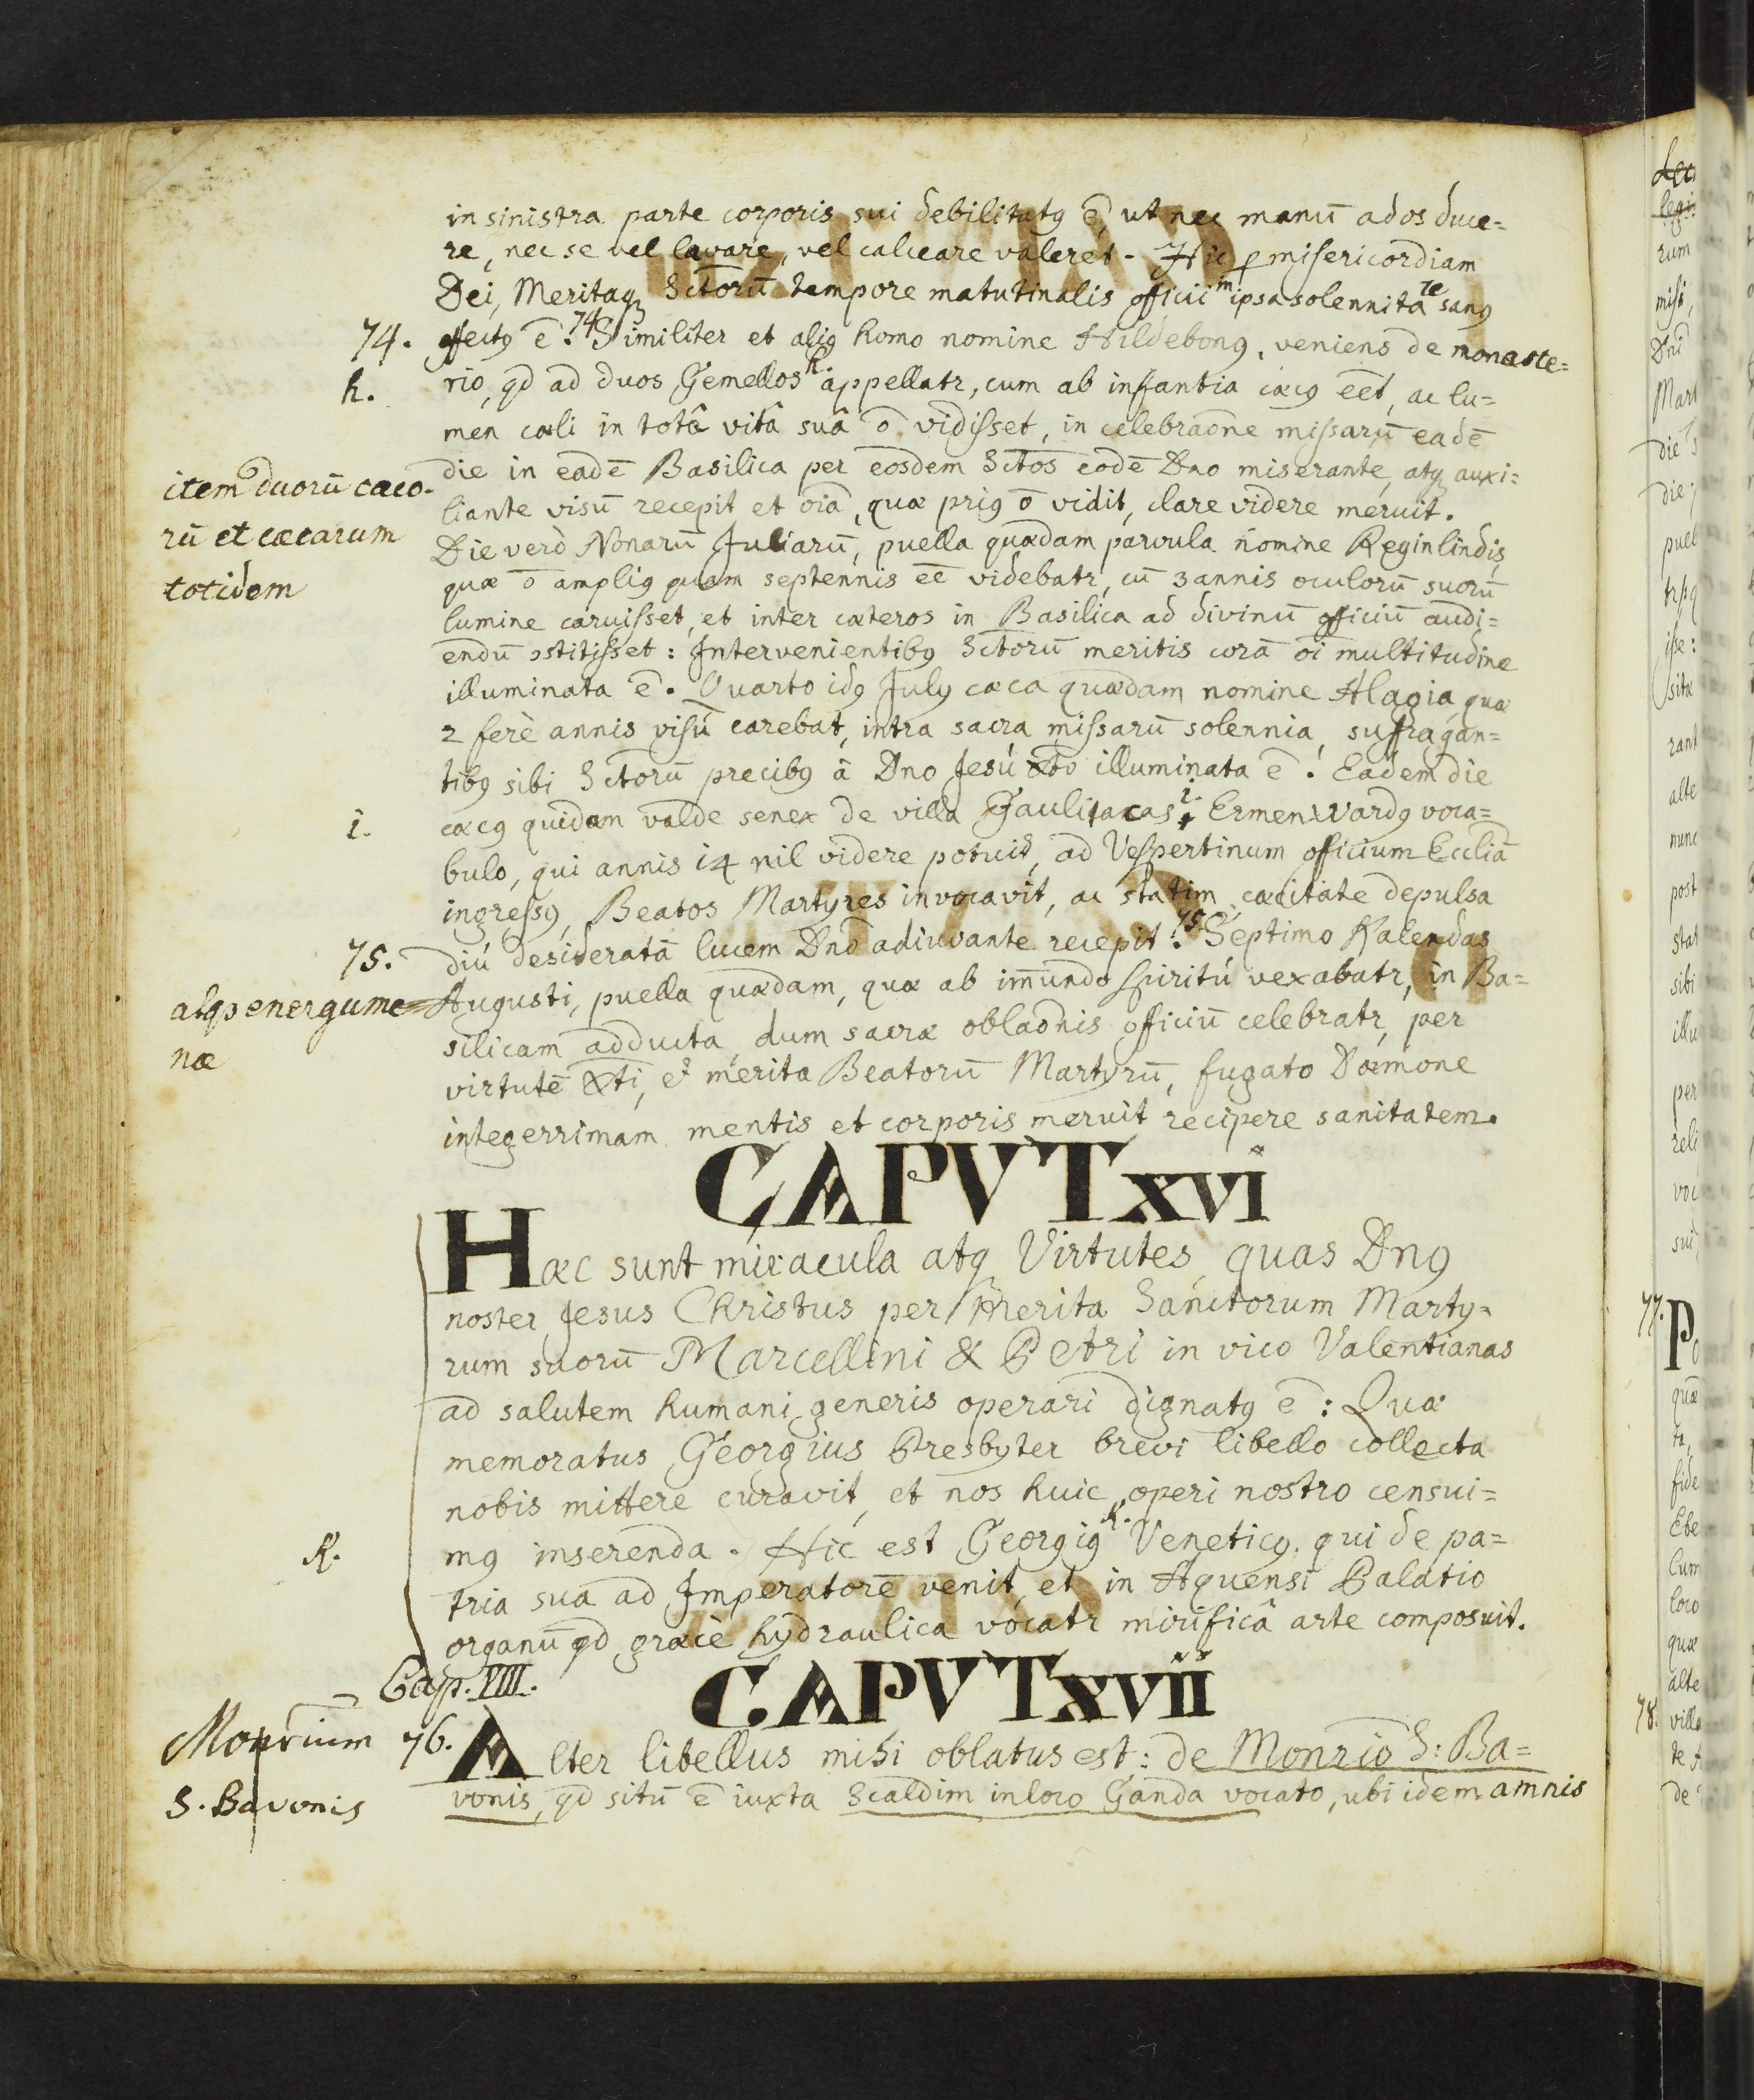 in sinistra parte corporis sui debilitatꝯ ē, ut nec manū ad os duce=
re, nec se vel lavare, vel calceare valeret. Hic ꝑ misericordiam
Dei, Meritaq̧ Sctorū tempore matutinalis officii in ipsa solennitate sanꝯ
74. effectꝯ ē. 74 Similiter et aliꝯ homo nomine Hildebonꝯ, veniens de monaste=
h. rio, qd ad duos Gemellos h. appellatr, cum ab infantia cæcꝯ eēt, ac lu=
men cæli in totâ vitâ suâ ō vidisset, in celebraōne missarū eadē
item duorū cæco- die in eadē Basilica per eosdem Sctos eodē Dno miserante, atq̧ auxi=
liante visū recepit et oīa, quæ priꝯ ō vidit, clare videre meruit.
rū et cæcarum
Die verò Nonarū Juliarū, puella quædam parvula nomine Reginlindis,
totidem
quæ ō ampliꝯ quam septennis eē videbatr, cū 3 annis oculorū suorū
lumine caruisset, et inter cæteros in Basilica ad divinū officiū audi=
endū ꝯstitisset: Intervenientibꝯ Sctorū meritis corā oī multitudine
illuminata ē. Quarto idꝯ Julÿ cæca quædam nomine Alagia, quæ
2 ferè annis visū carebat, intra sacra missarū solennia, suffragan=
tibꝯ sibi Sctorū precibꝯ à Dno Jesu Xto illuminata ē. Eadem die
i. cæcꝯ quidam valde senex de villa Gaulitacas i. Ermenwardꝯ voca=
bulo, qui annis 14 nil videre potuit, ad Vespertinum officium Eccliā
ingressꝯ, Beatos Martyres invocavit, ac statim cæcitate depulsa
75. diú desideratā lucem Dno adiuvante recepit. 75. Septimo Kalendas
atqꝫ energume= Augusti, puella quædam, quæ ab im̄undo spiritu vexabatr, in Ba=
næ silicam adducta dum sacræ oblaōnis officiū celebratr, per
virtutē Xti, et merita Beatorū Martyrū, fugato Dæmone
integerrimam mentis et corporis meruit recipere sanitatem.
CAPVT XVI
Hæc sunt miracula atq̧ Virtutes quas Dnꝯ
noster Jesus Christus per merita Sanctorum Marty=
rum suorū Marcellini & Petri in vico Valentianas
ad salutem humani generis operari dignatꝯ ē: Quæ
memoratus Georgius Presbyter brevi libello collecta
nobis mittere curavit, et nos huic operi nostro censui=
k. mꝯ inserenda. Hic est Georgiꝯ k. Veneticꝯ, qui de pa=
tria sua ad Imperatorē venit, et in Aquensi Palatio
organū qd græcè hydraulica vocatr mirificâ arte composuit.
Cap. VIII.
CAPVT XVII
Monrium 76. Alter libellus mihi oblatus est: de Monrio S: Ba=
S. Bavonis vonis, qd sitū ē iuxta Scaldim in loco Ganda vocato, ubi idem amnis